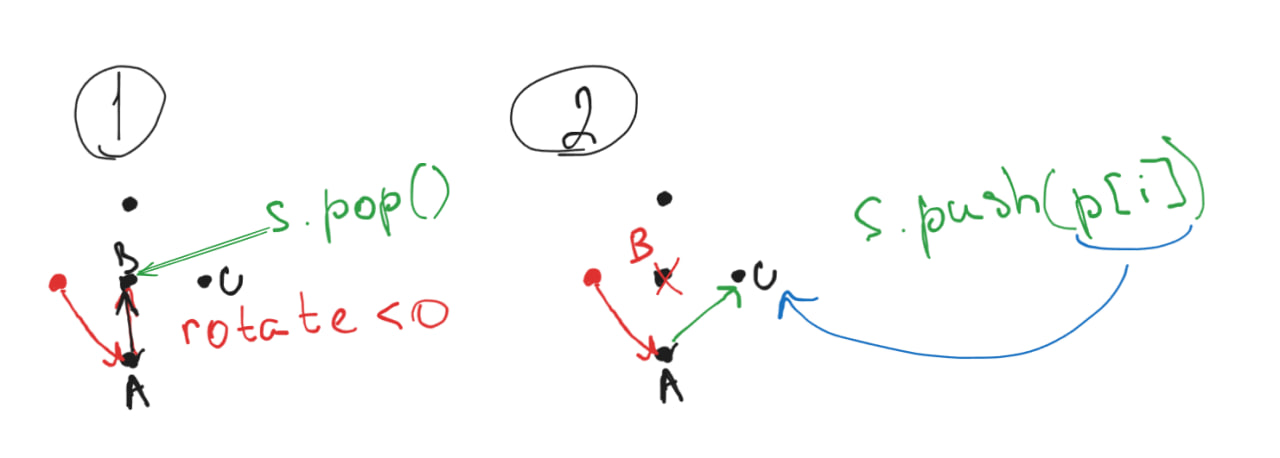 1
s.pop()
B
C
rotate <0
A
2
s.push(p[i])
B
C
A